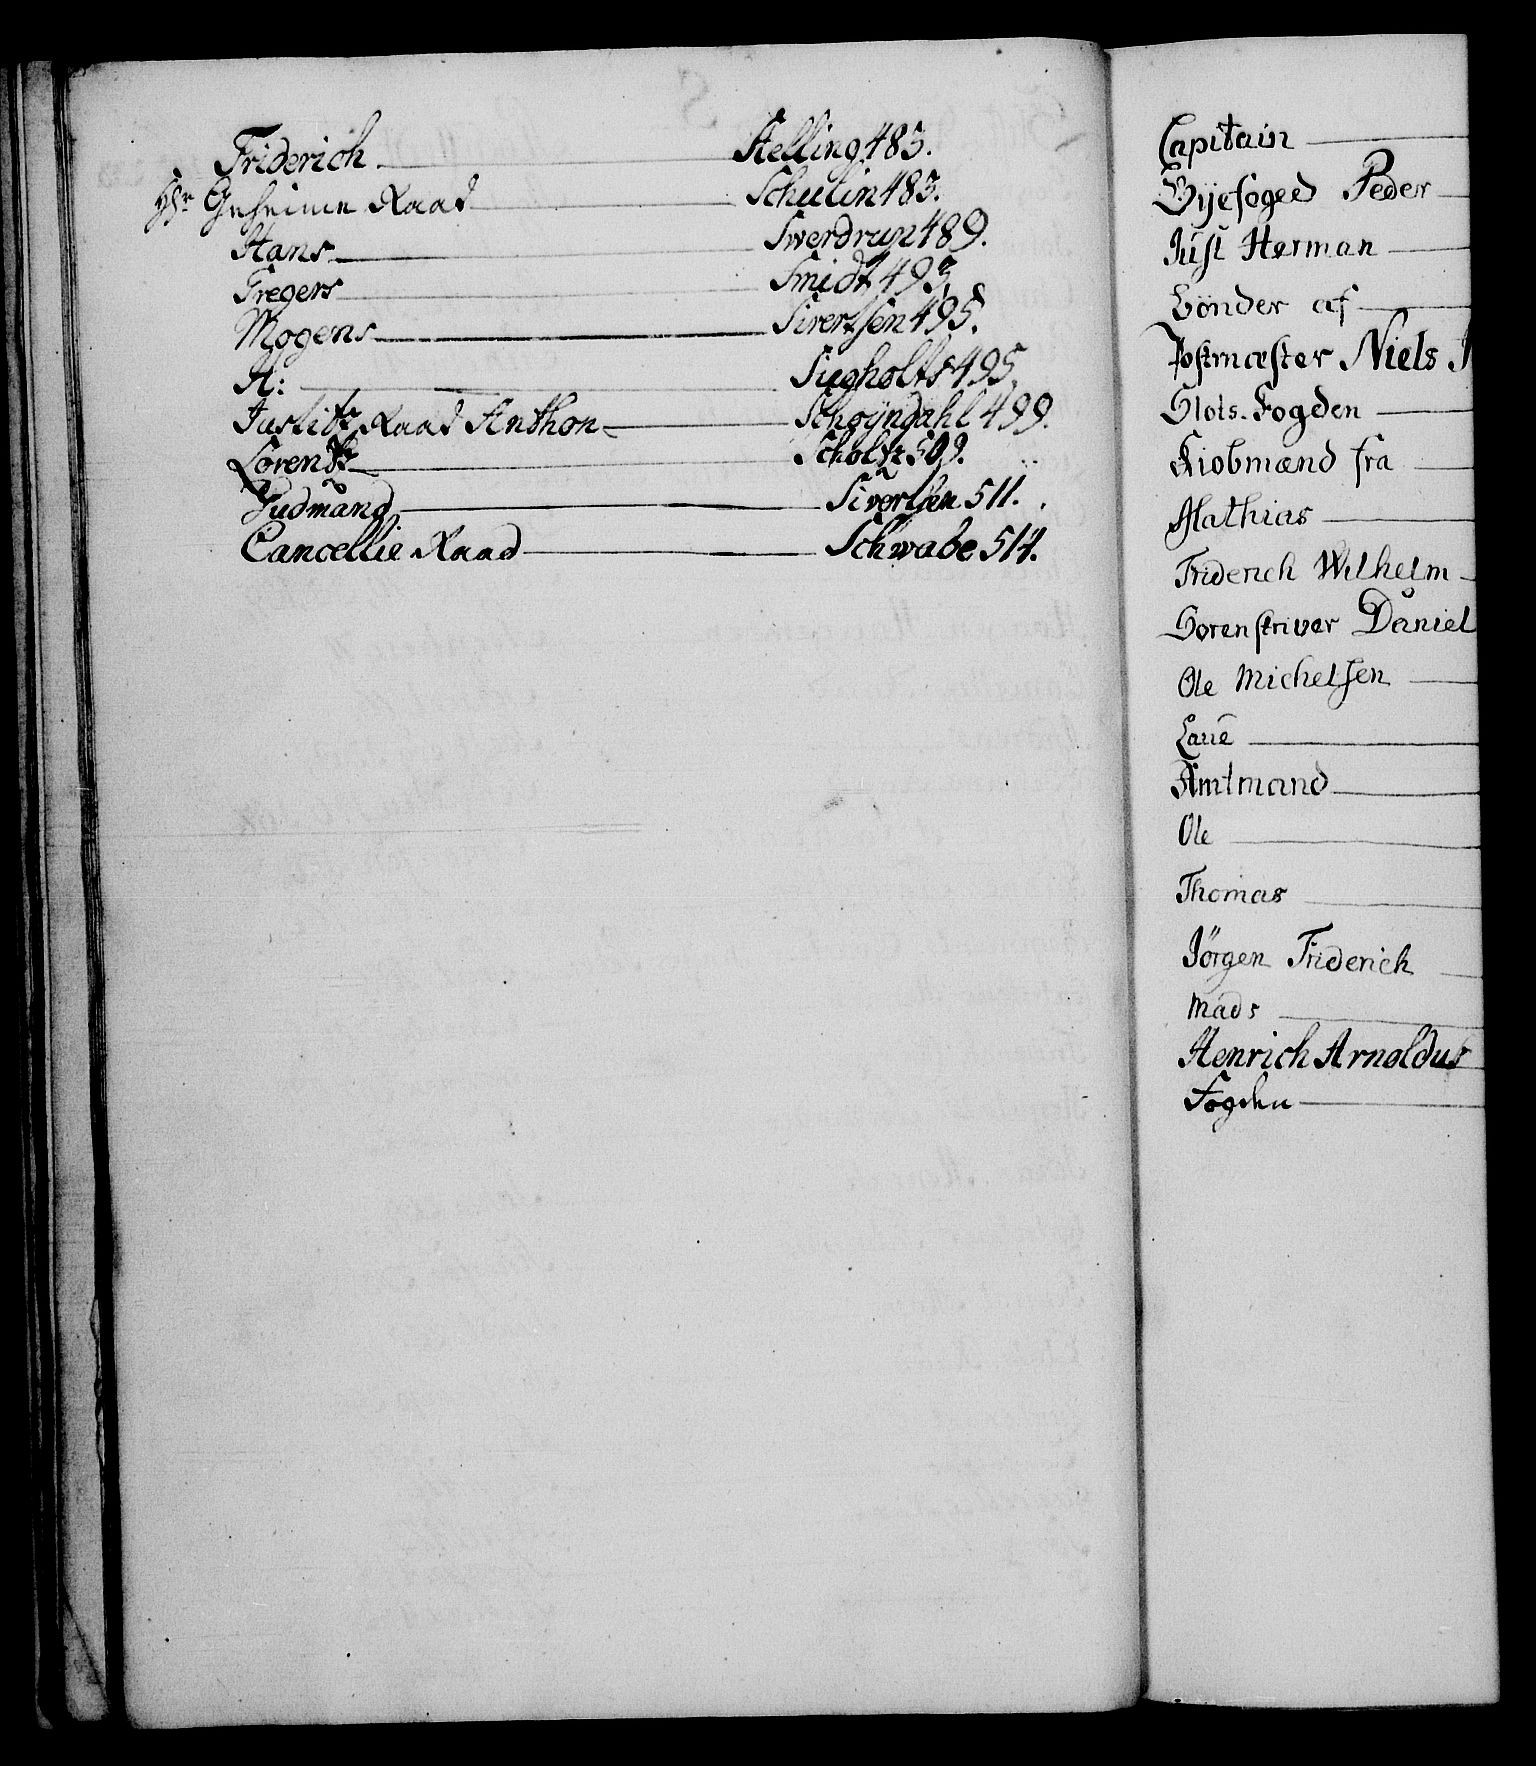 Friderich Stelling 483.
Hr Geheime Raad Schulin 483.
Hans Swerdrup 489.
Gregers Smidt 495.
Mogens Sivertsen 495.
H: Sugholts 495.
Justitz Raad Anthon Schøyndahl 499.
Lorentz Scholtz 509.
Gudmand Sivertsen 511.
Cancellie Raad Schwabe 514.
Capitain
Byefoged Peder
Just Herman
Bönder af
Postmæster Niels
Slots-Fogden
Kiobmænd fra
Mathias
Friderich Wilhelm
Sorenskriver Daniel
Ole Michelsen
Laue
Amtmand
Ole
Thomas
Jörgen Friderich
Mads
Henrich Arnoldus
Fogden